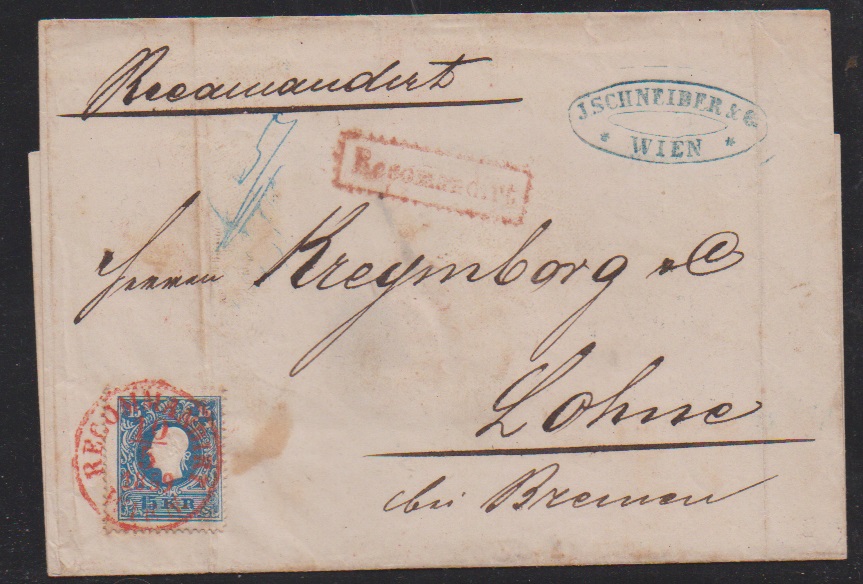 Recomandirt
J. SCHNEIDER & Co
* WIEN *
Recomandirt.
Herren Kreymborg & C
Lohne
bei Bremen
15 KR